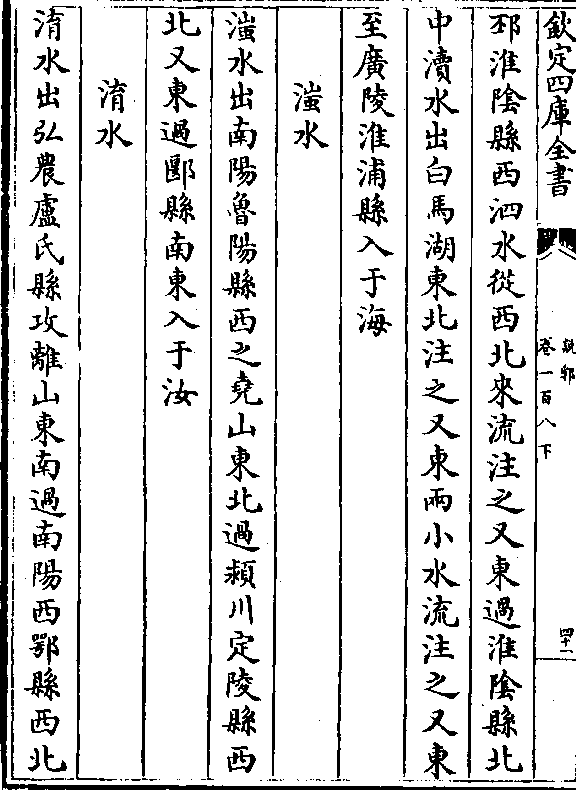 欽定四庫全書
說郛
卷一百八下
四十二
邳淮陰縣西泗水從西北來流注之又東過淮陰縣北
中瀆水出白馬湖東北注之又東兩小水流注之又東
至廣陵淮浦縣入于海
滍水
滍水出南陽魯陽縣西之堯山東北過潁川定陵縣西
北又東過郾縣南東入于汝
淯水
淯水出弘農盧氏縣攻離山東南過南陽西鄂縣西北